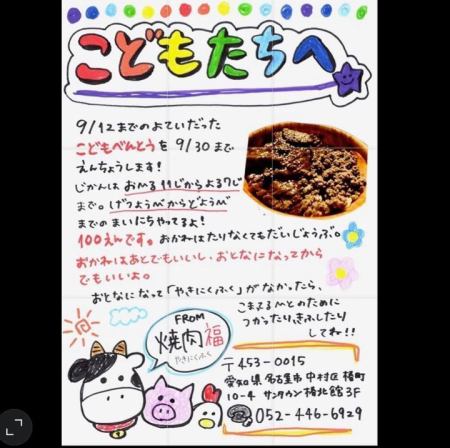 こどもたちへ
9/12までのよていだった
こどもべんとうを9/30まで
えんちょうします!
じかんはおひる11じからよる7じ
まで。げつようびからどようび
までのまいにちやってるよ!
100えんです。おかねはたりなくてもだいじょうぶ。
おかねはあとでもいいし、おとなになってから
でもいいよ。
おとなになって「やきにくふく」がなかったら、
こまってるひとのために
つかったり、きふしたり
してね!!
FROM
焼肉福
やきにくふく
〒453-0015
愛知県名古屋市中村区椿町
10-4 サンタウン椿北館3F
052-446-6929